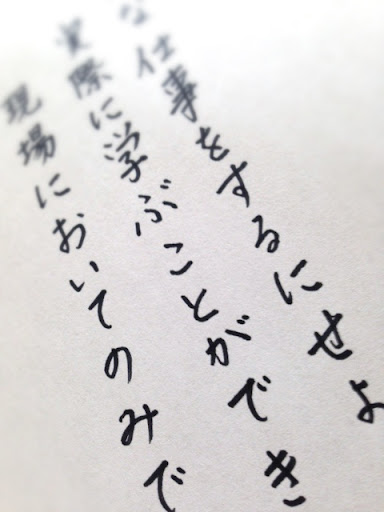 な仕事をするにせよ
実際に学ぶことができ
現場においてのみで